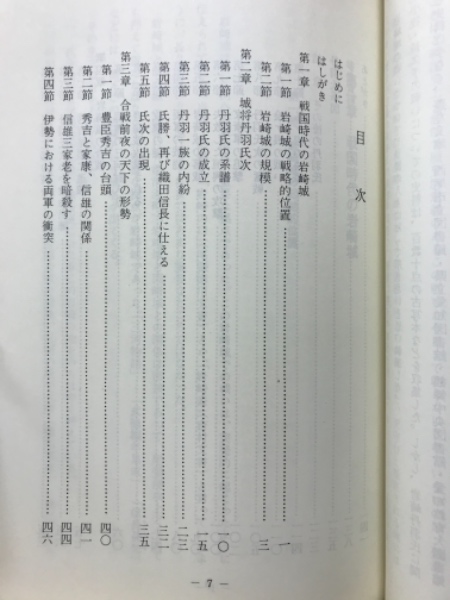 目次
はじめに
はしがき
第一章 戦国時代の岩崎城
第一節 岩崎城の戦略的位置……一
第二節 岩崎城の規模……三
第二章 城将丹羽氏次
第一節 丹羽氏の系譜……一〇
第二節 丹羽氏の成立……一五
第三節 丹羽一族の内紛……二三
第四節 氏勝、再び織田信長に仕える……三二
第五節 氏次の出現……三五
第三章 合戦前夜の天下の形勢
第一節 豊臣秀吉の台頭……四〇
第二節 秀吉と家康、信雄の関係……四一
第三節 信雄三家老を暗殺す……四四
第四節 伊勢における両軍の衝突……四六
― 7 ―